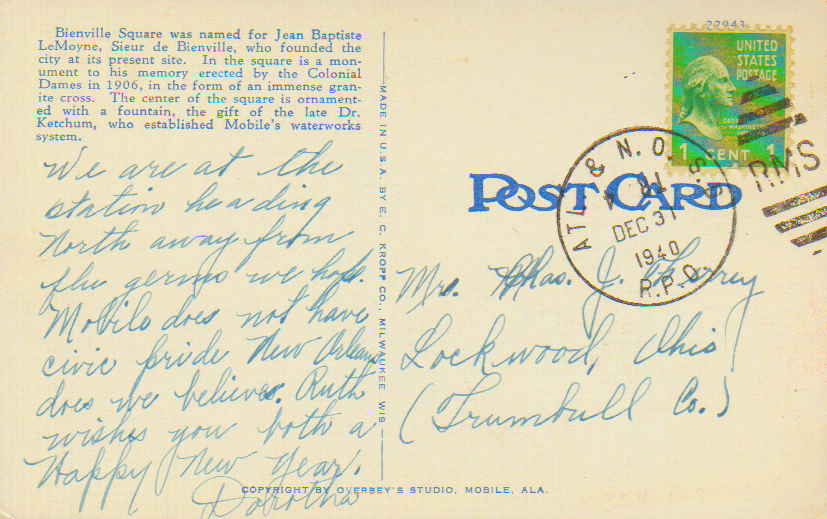 Bienville Square was named for Jean Baptiste
LeMoyne, Sieur de Bienville, who founded the
city at its present site. In the square is a mon-
ument to his memory erected by the Colonial
Dames in 1906, in the form of an immense gran-
ite cross. The center of the square is ornament-
ed with a fountain, the gift of the late Dr.
Ketchum, who established Mobile's waterworks
system.
We are at the
station heading
North away from
flu germs we hope.
Mobile does not have
civic pride New Orleans
does we believe. Ruth
wishes you both a
Happy New Year.
Dorotha
MADE IN U.S.A. BY E. C. KROPP CO., MILWAUKEE, WIS.
COPYRIGHT BY OVERBEY'S STUDIO, MOBILE, ALA.
22943
UNITED
STATES
POSTAGE
1 CENT 1
POST CARD
ATL. & N.O.
TR 4
DEC 31
1940
R.P.O.
RMS
Mrs. Chas. J.
Lockwood, Ohio
(Trumbull Co.)